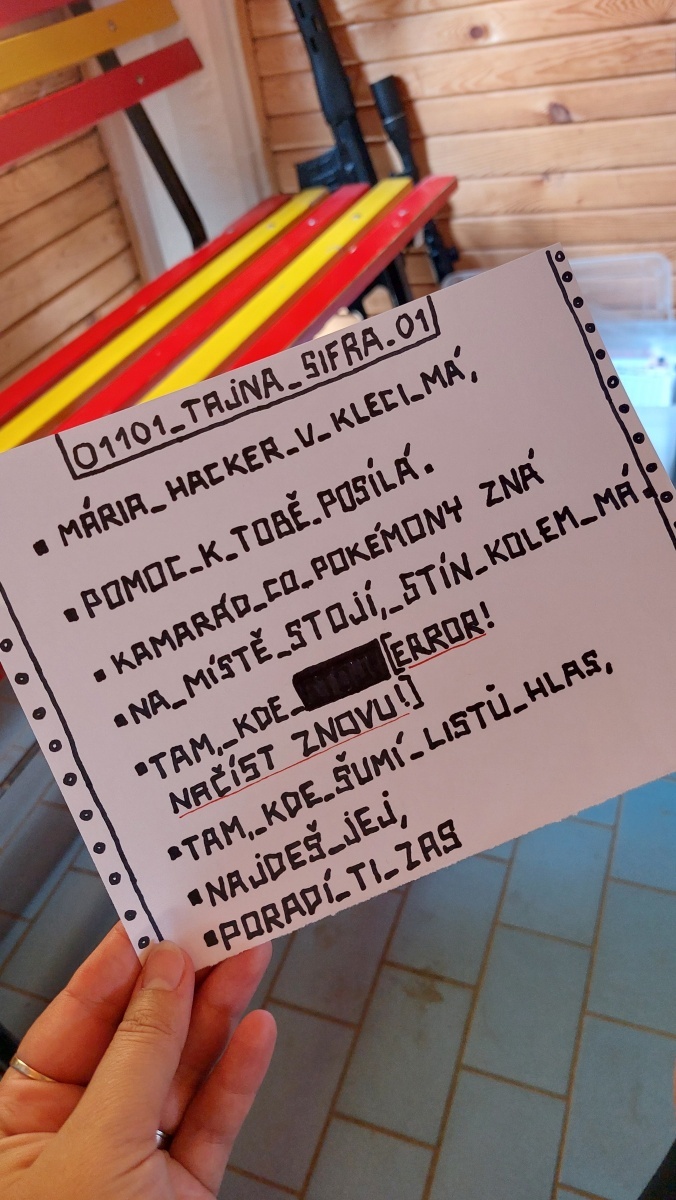 01101_TAJNA_SIFRA.01
▪ MÁRIA_HACKER_V_KLECI_MÁ,
▪ POMOC_K_TOBĚ_POSÍLÁ.
▪ KAMARÁD_CO_POKÉMONY ZNÁ
▪ NA_MÍSTĚ_STOJÍ,_STÍN_KOLEM_MÁ.
▪ TAM,_KDE_ [ERROR!
NAČÍST ZNOVU!]
▪ TAM,_KDE_ŠUMÍ_LISTŮ_HLAS,
▪ NAJDEŠ_JEJ,
▪ PORADÍ_TI_ZAS